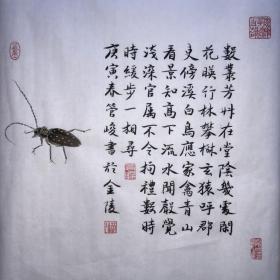 數叢芳艸在堂陰幾處閑
花暎竹林攀樹玄猿呼郡
吏傍溪白鳥應家禽青山
看景知高下流水聞聲覺
淺深官屬不令拘禮數時
時緩步一相尋
庚寅春管峻書於金陵